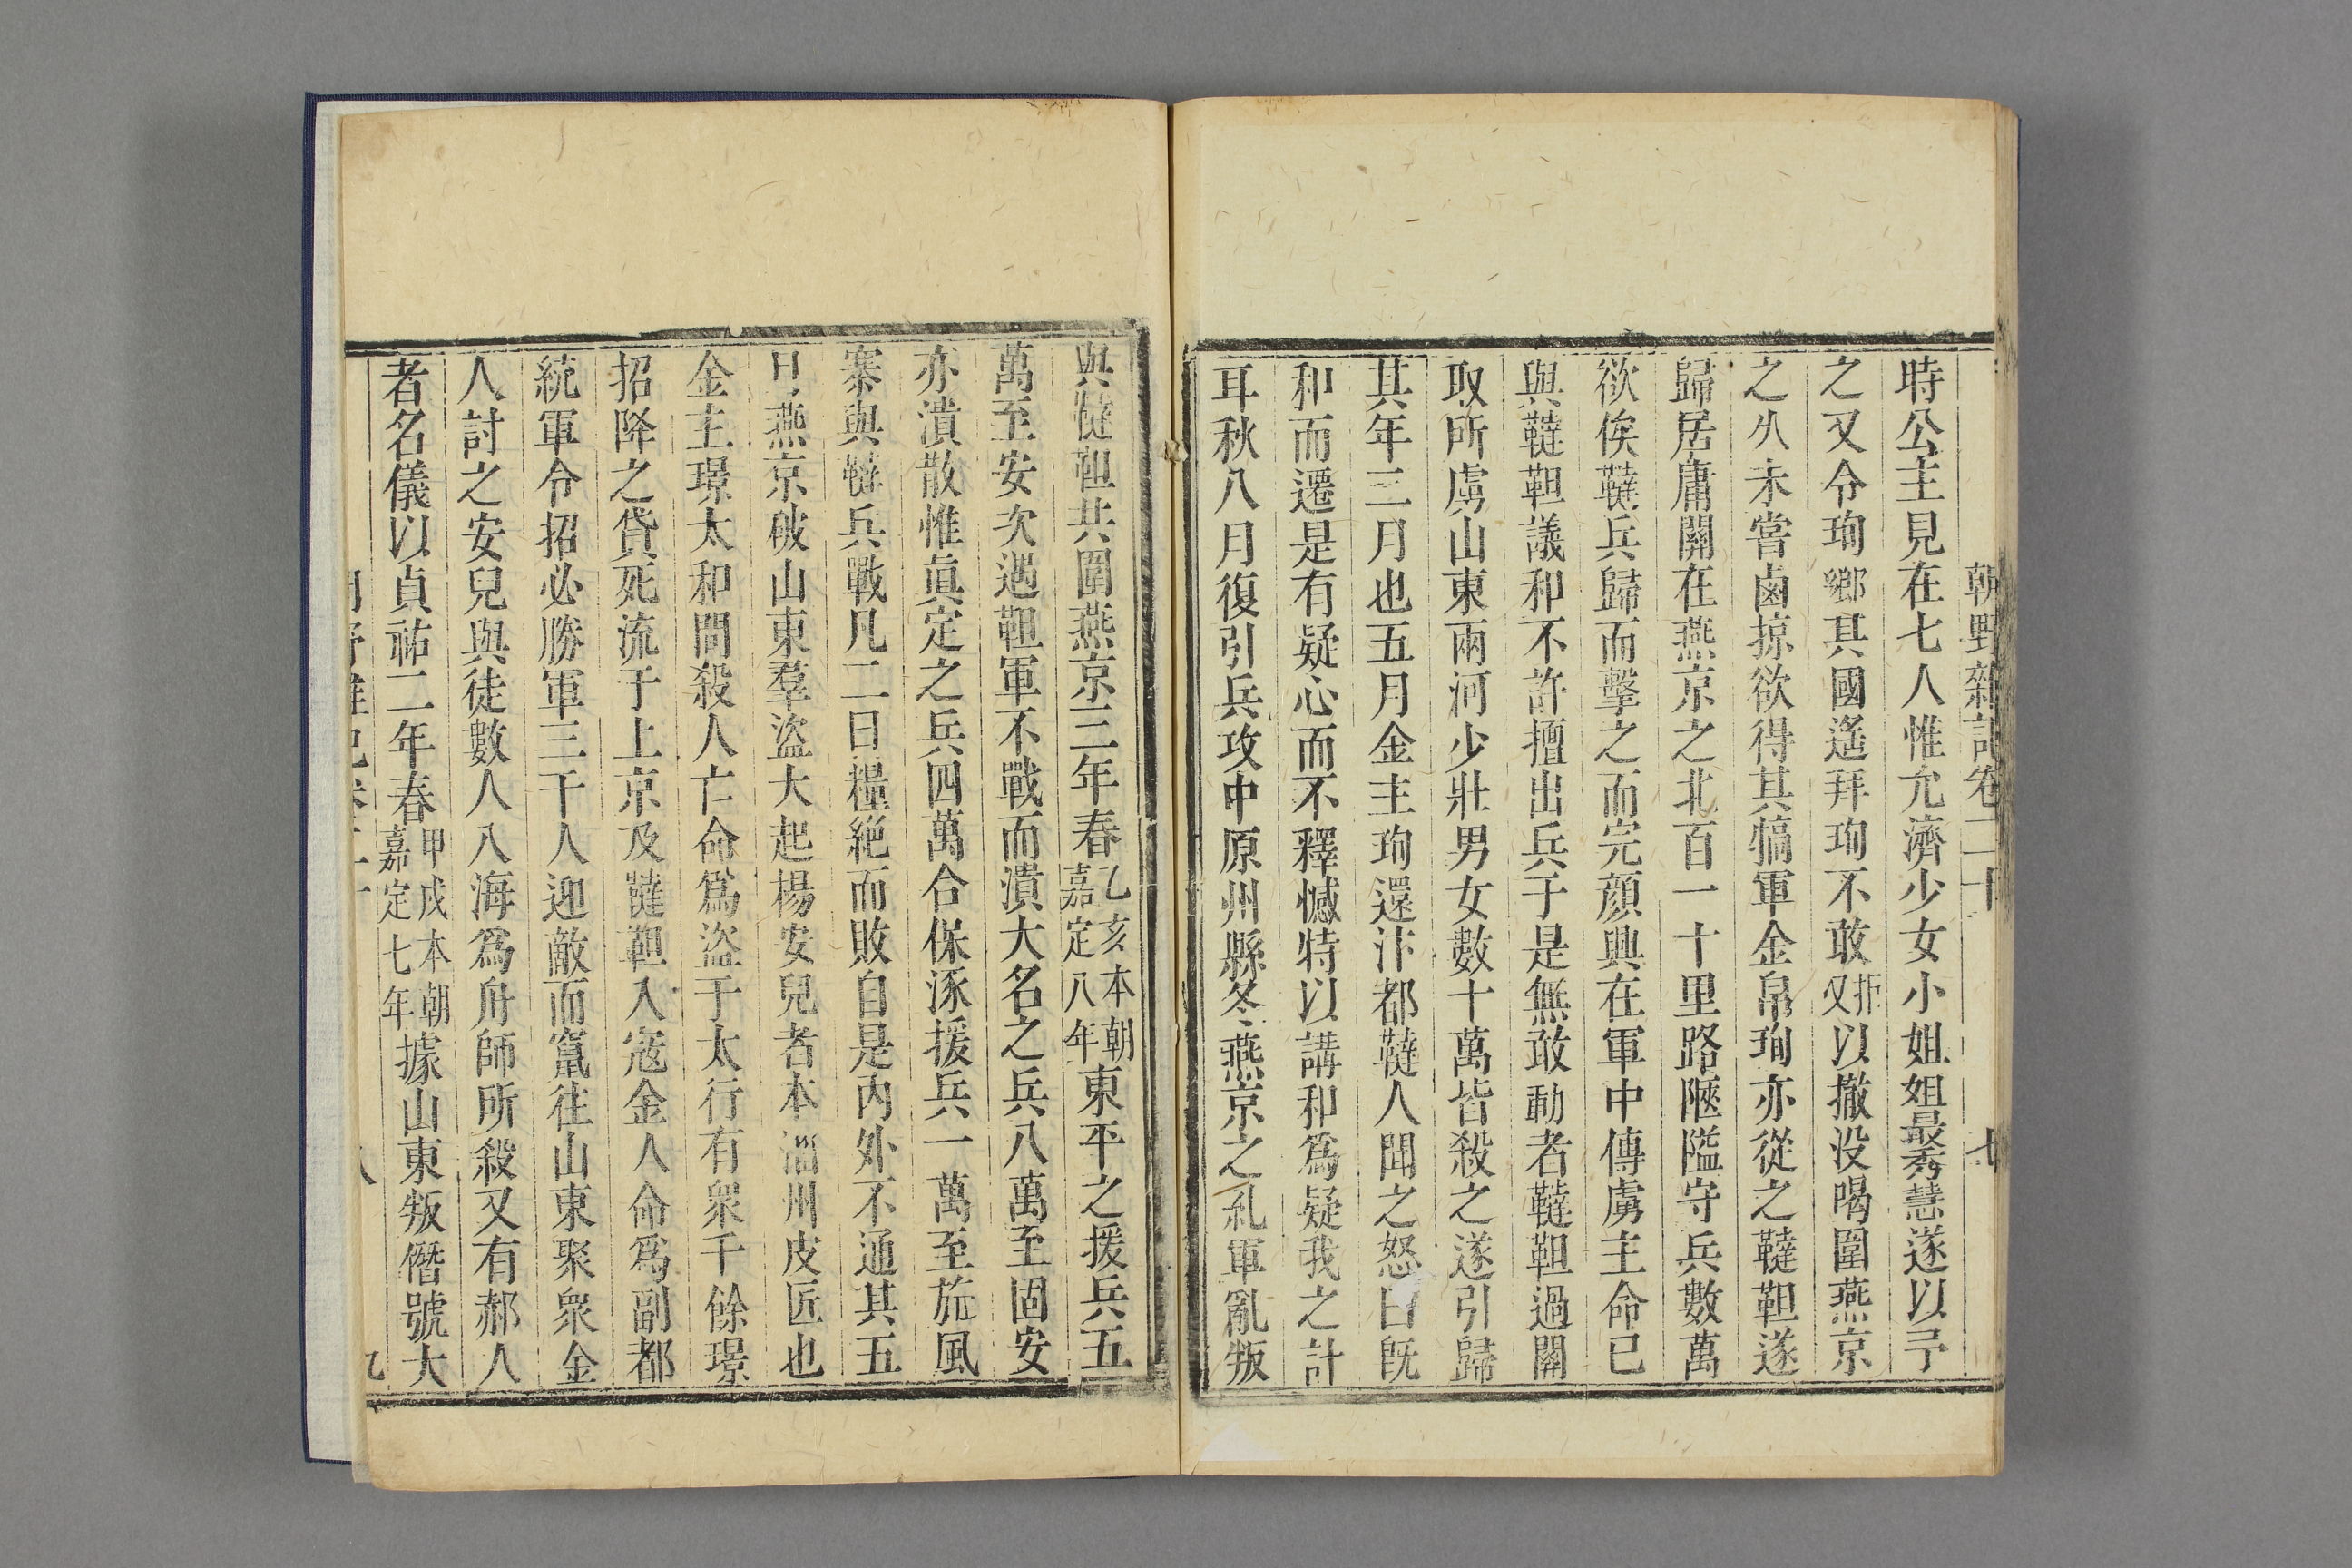 朝野雜記卷二十 七
時公主見在七人惟允濟少女小姐姐最秀慧遂以予
之又令珣鄉其國遙拜珣不敢拒又以撤没喝圍燕京
之久未嘗鹵掠欲得其犒軍金帛珣亦從之韃靼遂
歸居庸關在燕京之北百一十里路陿隘守兵數萬
欲俟韃兵歸而擊之而完顔興在軍中傳虜主命已
與韃靼議和不許擅出兵于是無敢動者韃靼過關
取所虜山東兩河少壯男女數十萬皆殺之遂引歸
其年三月也五月金主珣還汴都韃人聞之怒曰既
和而遷是有疑心而不釋憾特以講和爲疑我之計
耳秋八月復引兵攻中原州縣冬燕京之乣軍亂叛
與韃靼共圍燕京三年春乙亥本朝嘉定八年東平之援兵五
萬至安次遇靼軍不戰而潰大名之兵八萬至固安
亦潰散惟眞定之兵四萬合保涿援兵一萬至旋風
寨與韃兵戰凡二日糧絶而敗自是内外不通其五
月燕京破山東羣盜大起楊安兒者本淄州皮匠也
金主璟太和間殺人亡命爲盜于太行有衆千餘璟
招降之貸死流于上京及韃靼入寇金人命爲副都
統軍令招必勝軍三千人迎敵而竄往山東聚衆金
人討之安兒與徒數人入海爲舟師所殺又有郝八
者名儀以貞祐二年春甲戌本朝嘉定七年據山東叛僭號大
八 乙